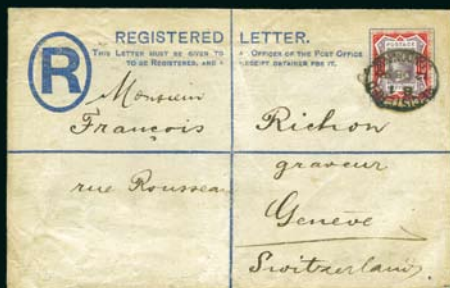 REGISTERED LETTER.
THIS LETTER MUST BE GIVEN TO OFFICER OF THE POST OFFICE
TO BE REGISTERED, AND A RECEIPT OBTAINED FOR IT.
R
POSTAGE
Monsieur
François Richon
graveur
rue Rousseau
Genève
Switzerland